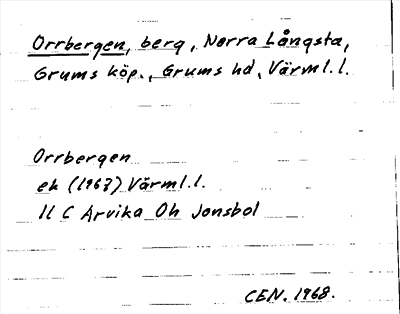 Orrbergen, berg, Norra Långsta,
Grums köp., Grums hd, Värml.l.
Orrbergen
ek (1967) Värml.l.
11 C Arvika Öh Jonsbol
CEN. 1968.